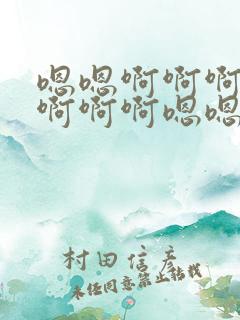 嗯嗯啊啊啊
啊啊啊嗯嗯
村田信彦
未经同意禁止转载